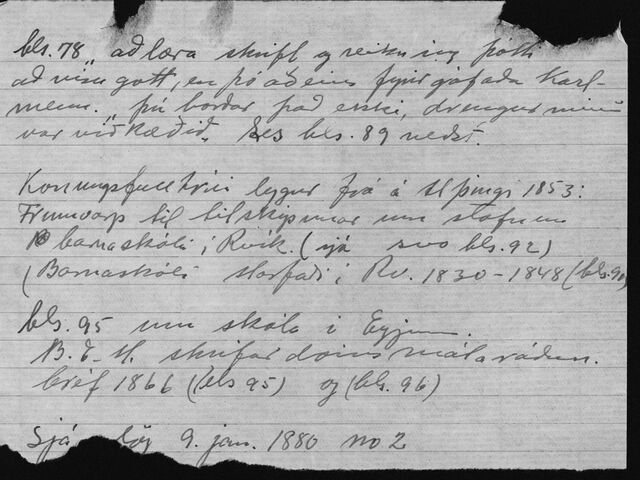 bls. 78 „að læra skrift og reikning þótti
að vísu gott, en þó aðeins fyrir gáfaða karl-
menn. „Þú borðar það ekki, drengur minn
var viðkvæðið. Les bls. 89 neðst.
Konungsfulltrúi lýgur frá á Alþingi 1853:
Frumvarp til tilskipunar um stofnun
barnaskóla í Rvík. (sjá svo bls. 92)
(Barnaskóli starfaði í Rv. 1830-1848 (bls. 90)
bls. 95 um skóla í Eyjum.
B. E. M. skrifar dómsmálaráðun.
bréf 1866 (bls 95) og (bls. 96)
Sjá lög 9. jan. 1880 no 2